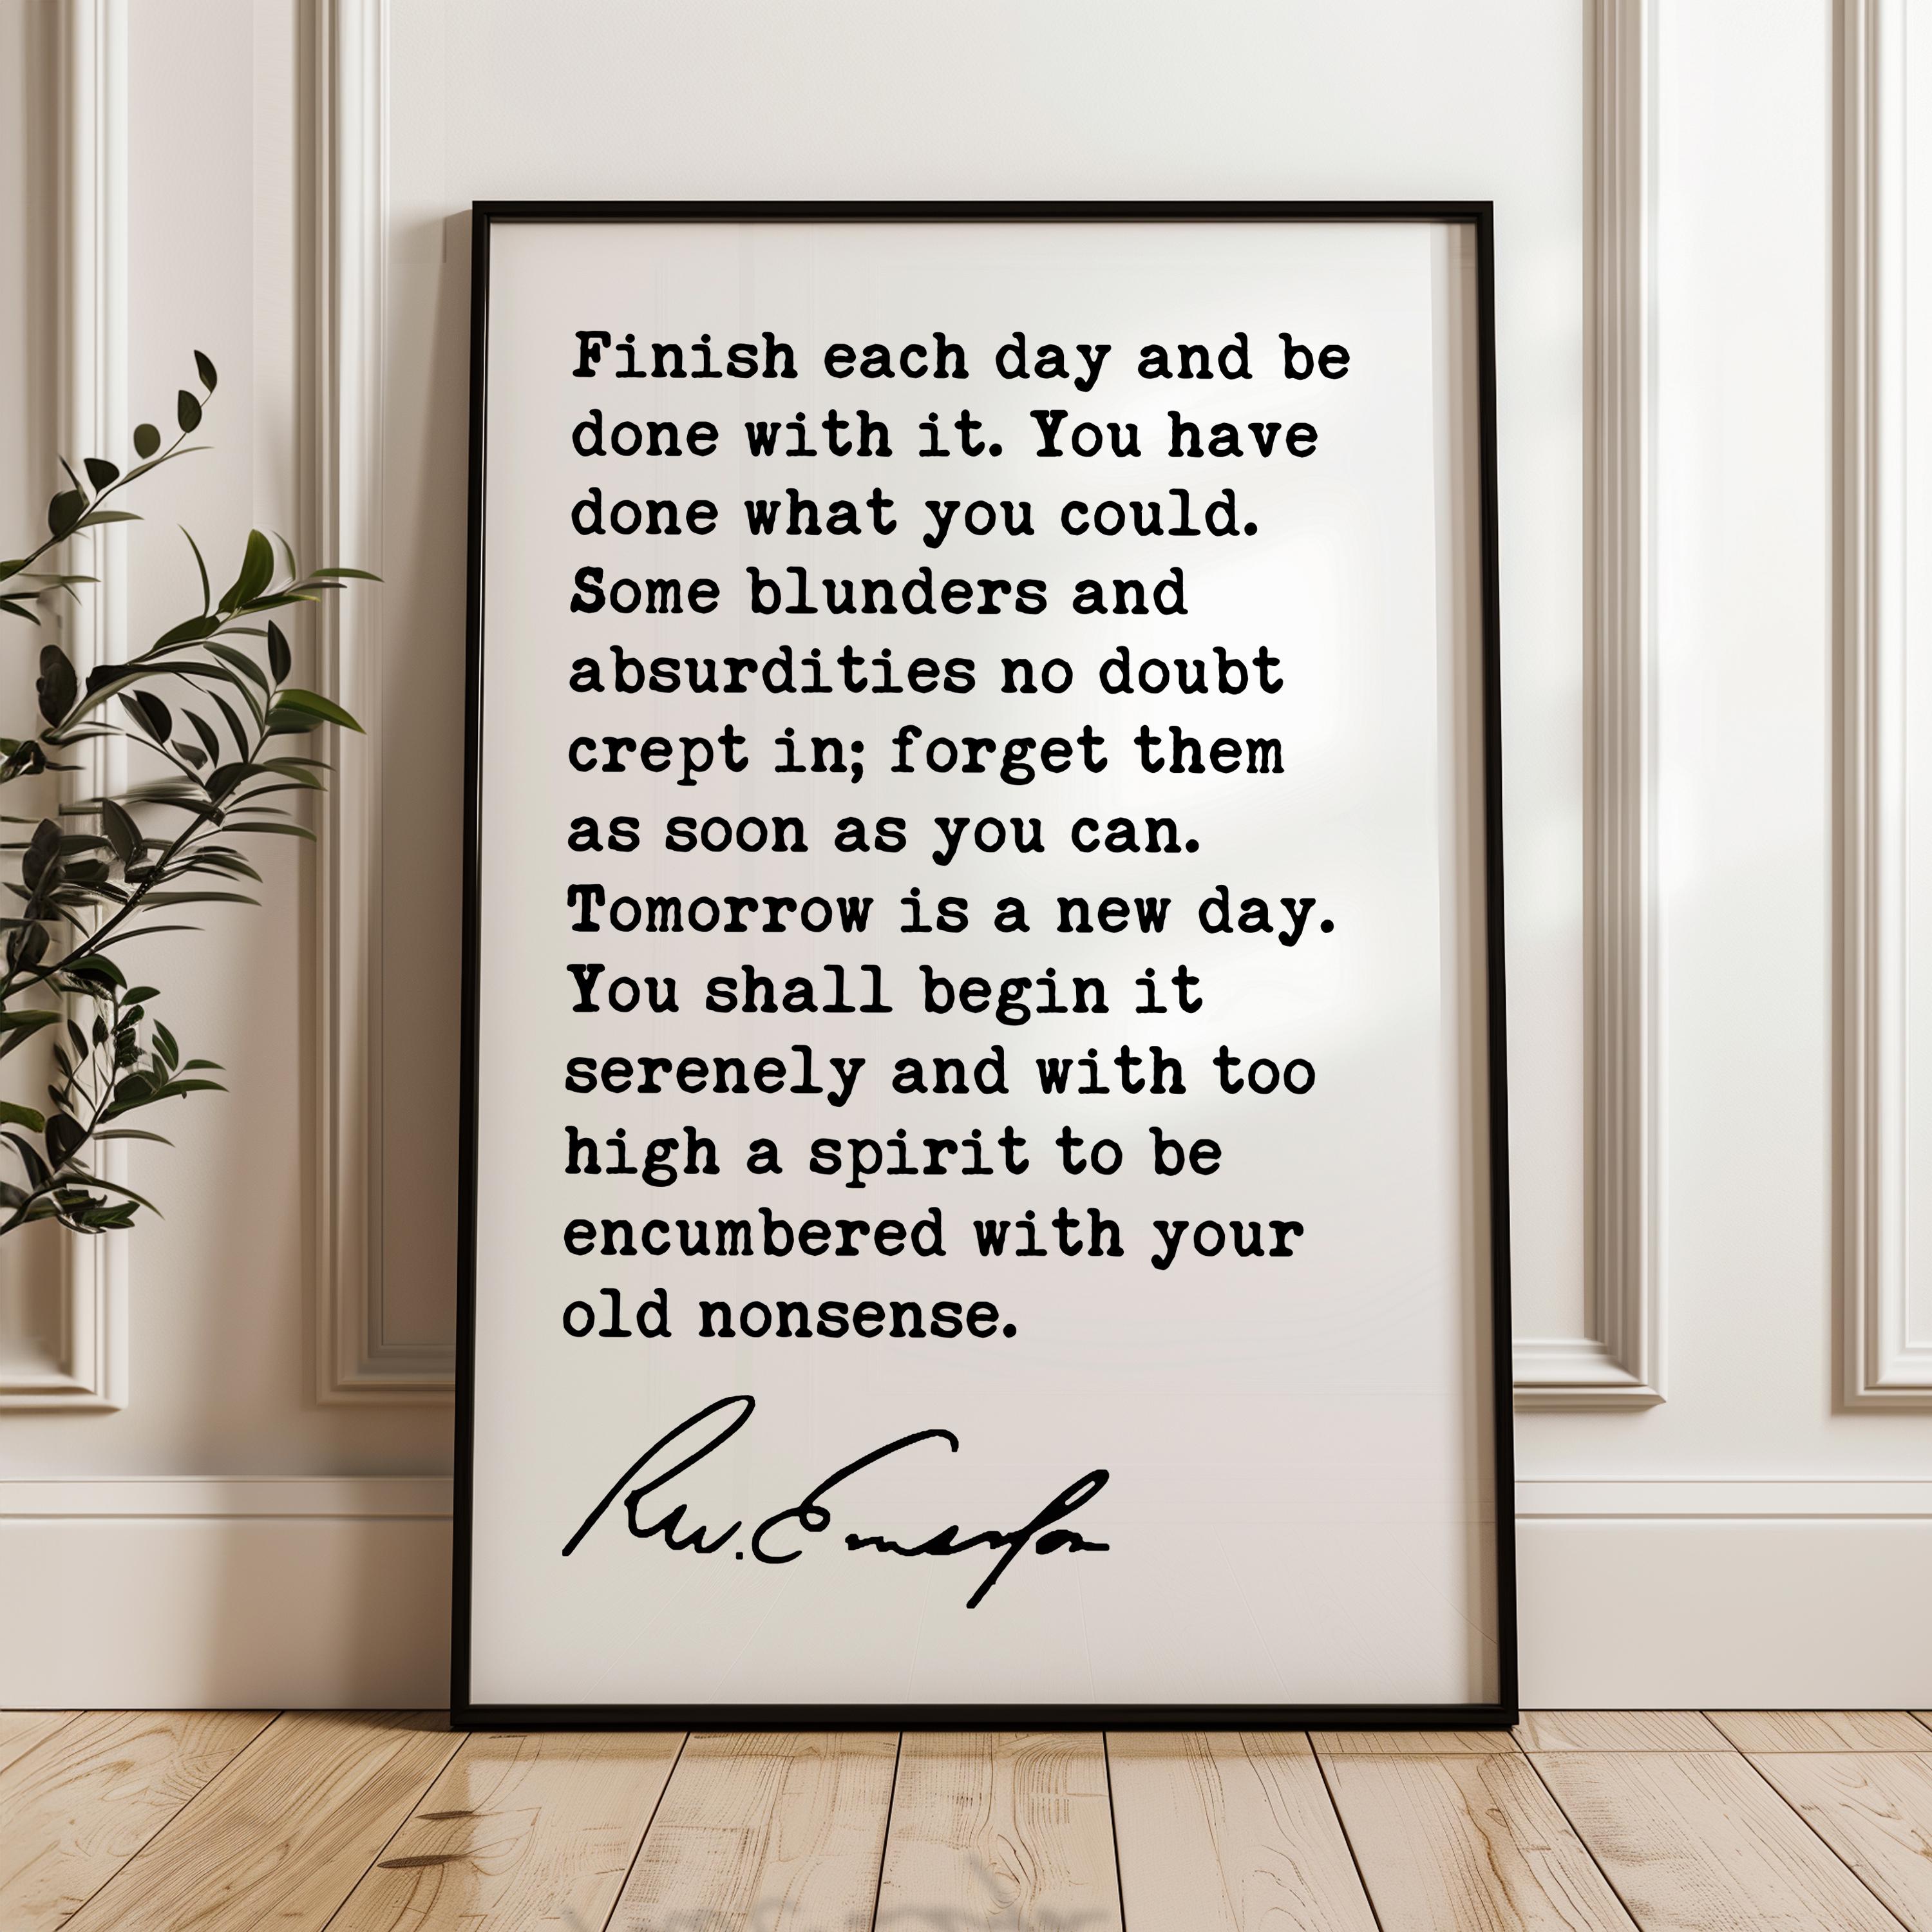 Finish each day and be
done with it. You have
done what you could.
Some blunders and
absurdities no doubt
crept in; forget them
as soon as you can.
Tomorrow is a new day.
You shall begin it
serenely and with too
high a spirit to be
encumbered with your
old nonsense.
R.W. Emerson